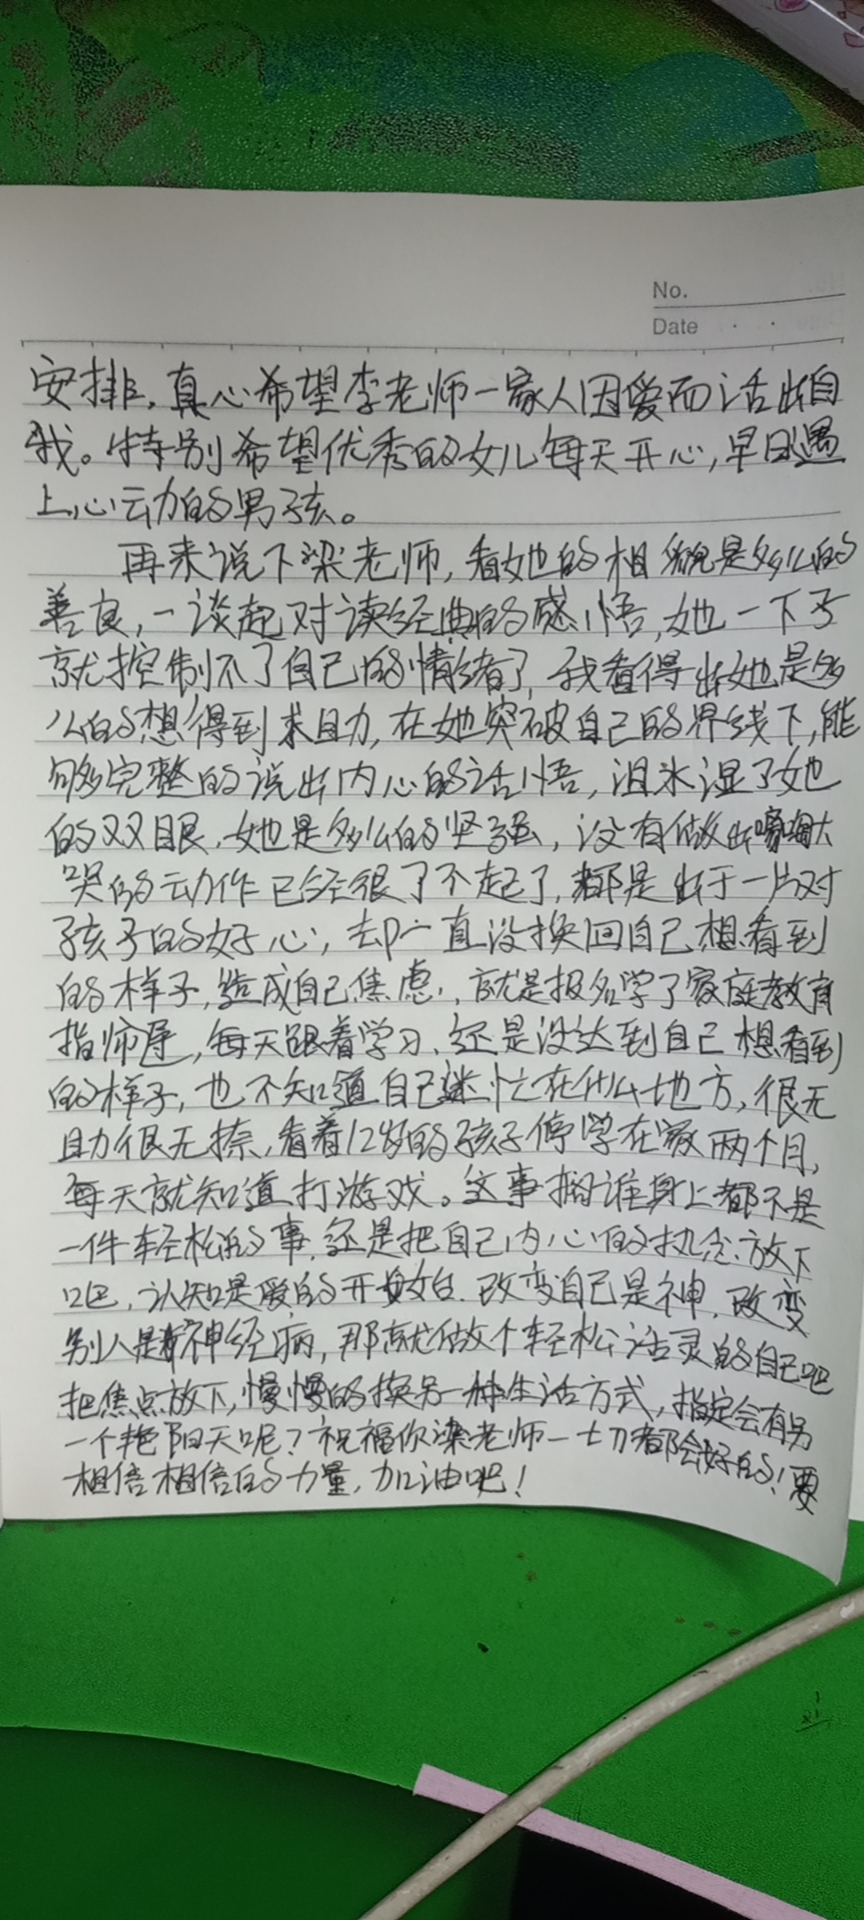 No.
Date
安排,真心希望李老师一家人因爱而活出自
我。特别希望优秀的女儿每天开心,早日遇
上心动的男孩。
再来说下梁老师,看她的相貌是多么的
善良,一谈起对读经典的感悟,她一下子
就控制不了自己的情绪了,我看得出她是多
么的想得到求助,在她突破自己的界线下,能
够完整的说出内心的话悟,泪水湿了她
的双眼,她是多么的坚强,没有做出嚎啕大
哭的动作已经很了不起了,都是出于一片对
孩子的好心,却一直没换回自己想看到
的样子,造成自己焦虑,就是报名学了家庭教育
指师导,每天跟着学习,还是没达到自己想看到
的样子,也不知道自己迷忙在什么地方,很无
助很无捺,看着12岁的孩子停学在家两个月,
每天就知道打游戏。这事搁谁身上都不是
一件轻松的事,还是把自己内心的执念放下
吧,认知是爱的开始,改变自己是神,改变
别人是神经病,那就做个轻松活灵的自己吧
把焦点放下,慢慢的换另一种生活方式,指定会有另
一个艳阳天呢?祝福你梁老师一切都会好的!要
相信相信的力量,加油吧!